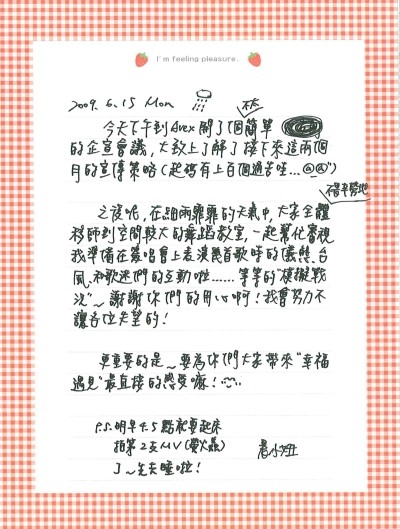 I'm feeling pleasure.
2009. 6. 15 Mon
今天下午到Avex開了個簡單
不太
的企宣會議，大致上了解了接下來這兩個
月的宣傳策略（起碼有上百個通告哇...@@"）
之後呢，在細雨霏霏的天氣中，大家全體
移師到空間較大的舞蹈教室，一起幫忙審視
我準備在簽唱會上表演幾首歌時的儀態、台
風、和歌迷們的互動啦......等等的"模擬戰
況"~ 謝謝你們的用心啊！我會努力不
讓各位失望的！
更重要的是~要為你們大家帶來"幸福
遇見"最直接的感受嘛！
P.S. 明早4.5點就要起床
拍第2支MV(螢火蟲)
了~先去睡啦！